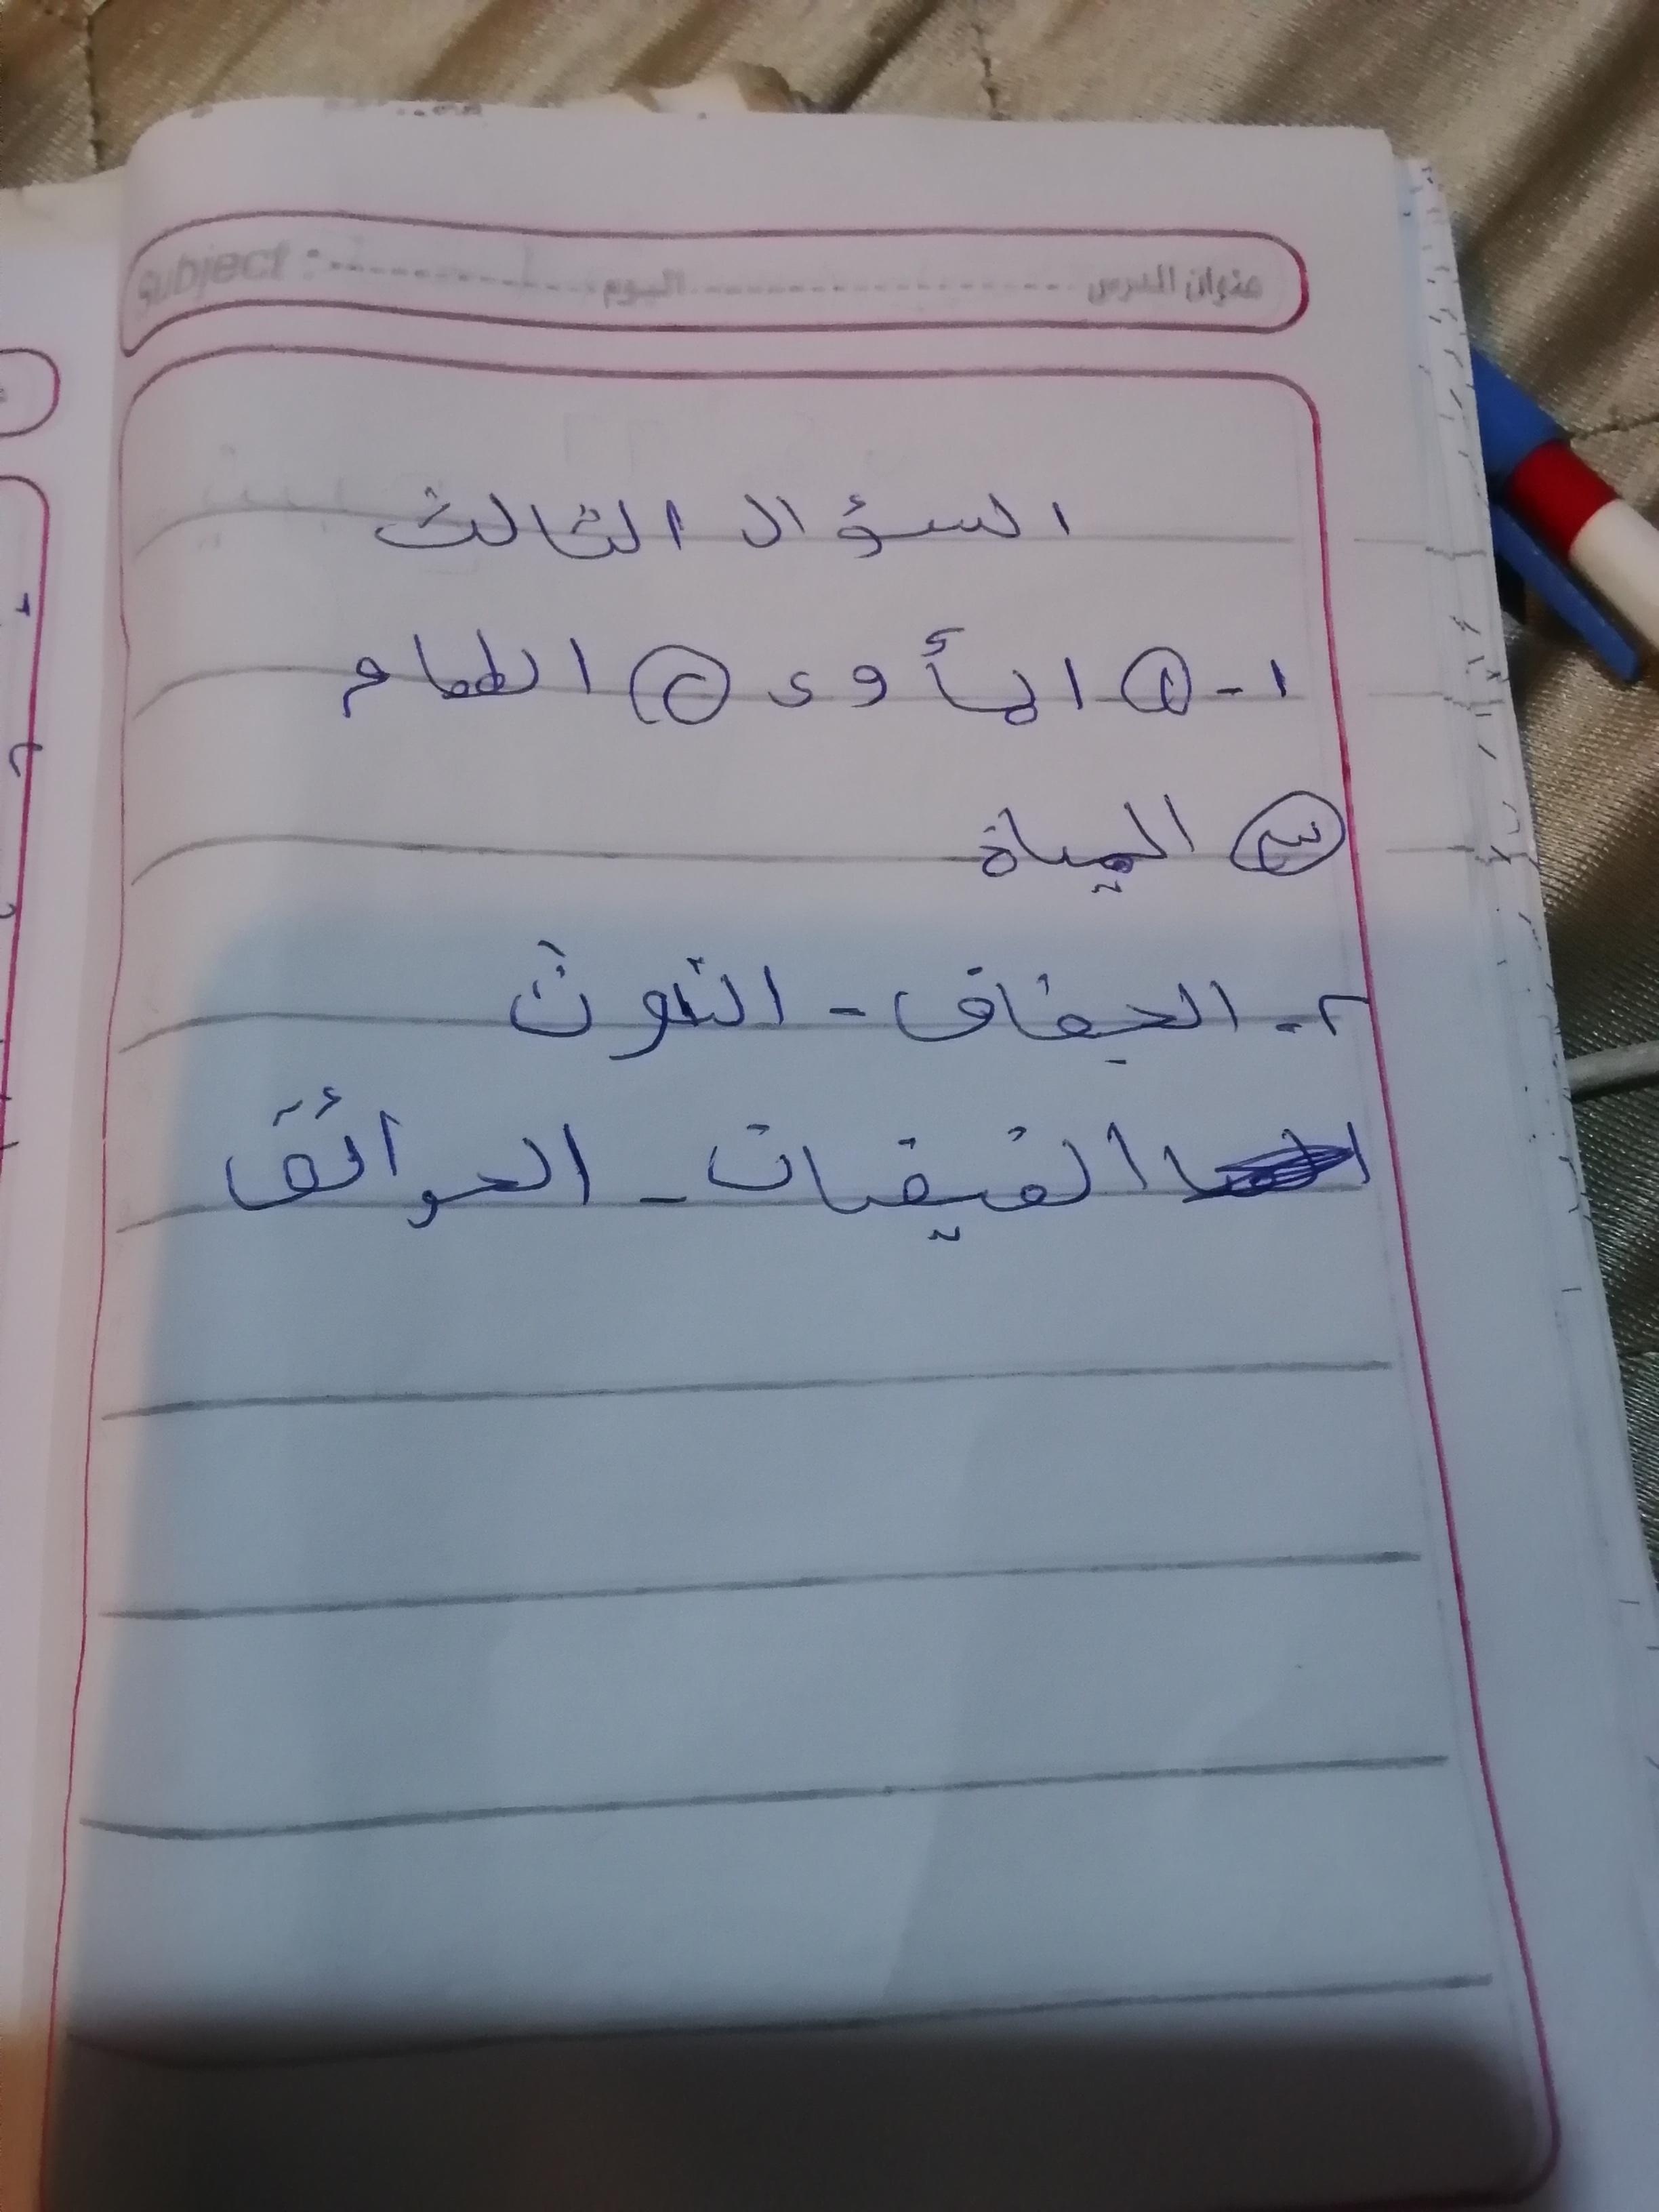 عنوان الدرس ........ اليوم ........ Subject :
السؤال الثالث
١- ١ المأوى ٢ الطعام
٣ المياة
٢- الجفاف - التلوث
الفيضانات - الحرائق